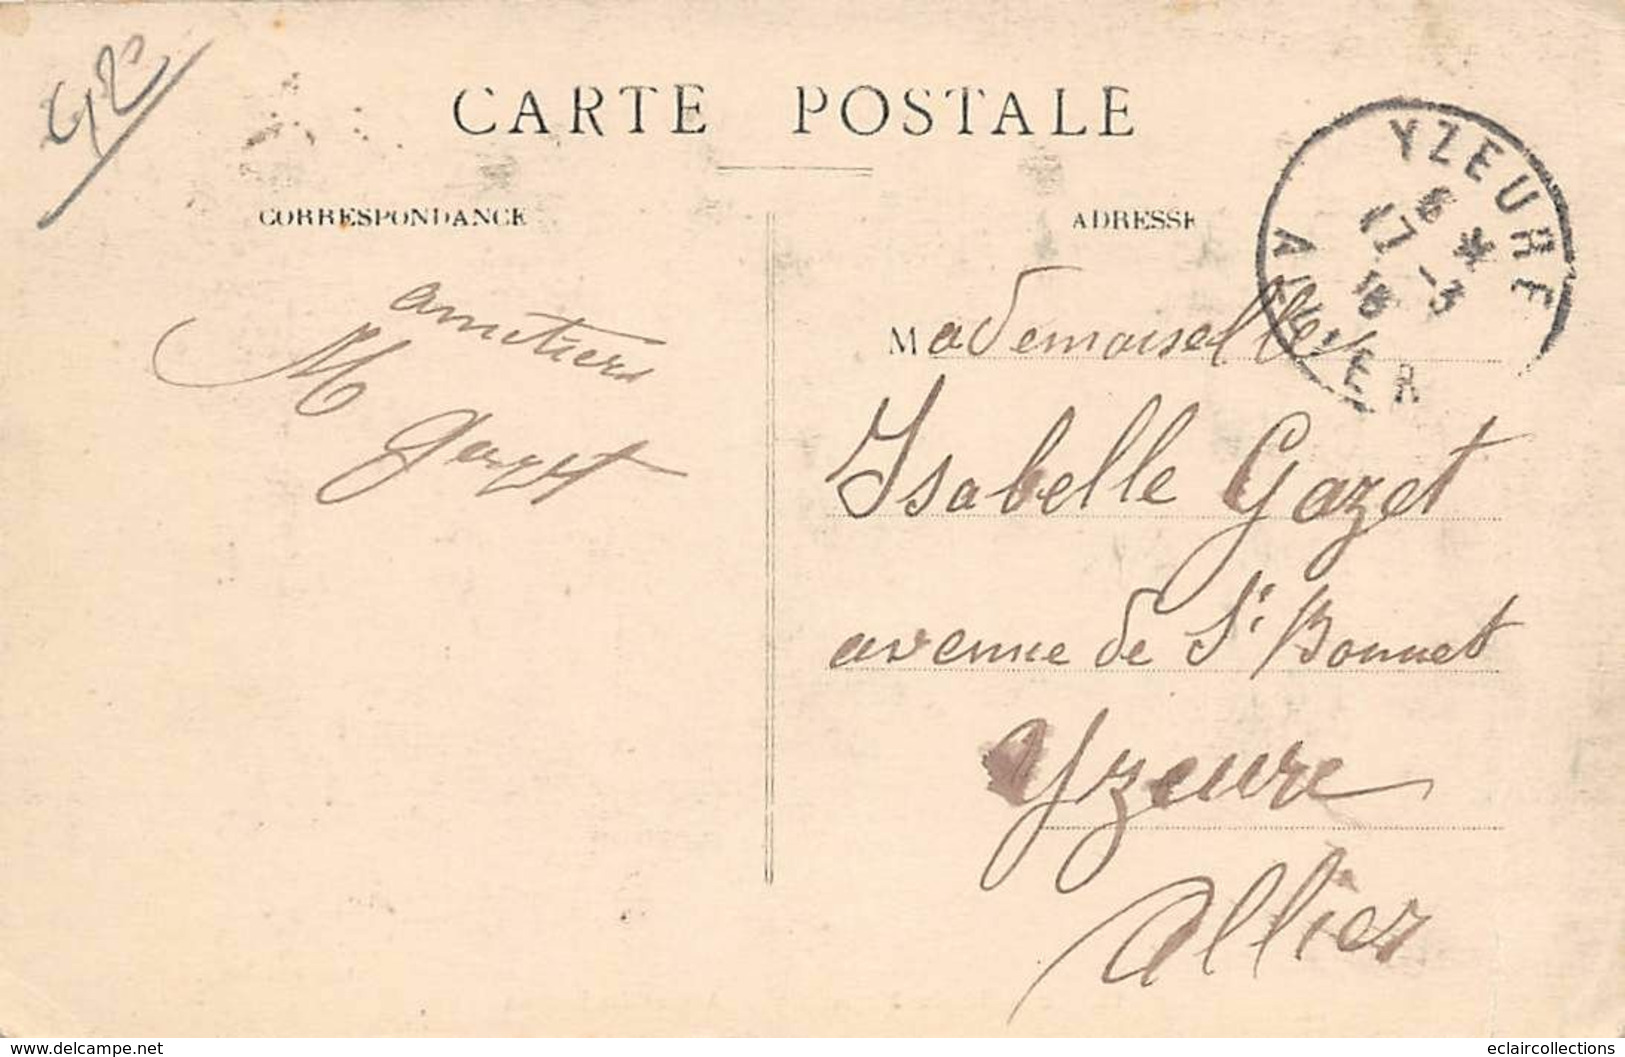 CARTE POSTALE
CORRESPONDANCE
ADRESSE
YZEURE
6 *
17 -3
16
ALLIER
amitiers
M
Mademoiselle
Isabelle Gazet
avenue de St Bonnet
Yzeure
Allier
www.delcampe.net
eclaircollections